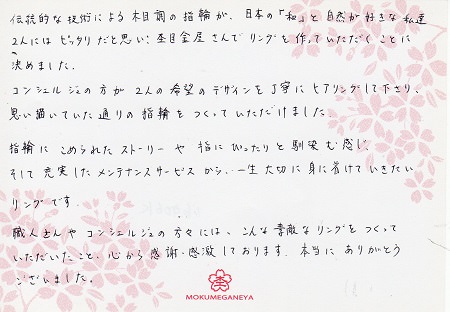 伝統的な技術による木目調の指輪が、日本の「和」と自然が好きな私達
2人にはピッタリだと思い、杢目金屋さんでリングを作っていただくことに
決めました。
コンシェルジュの方が2人の希望のデザインを丁寧にヒアリングして下さり、
思い描いていた通りの指輪をつくっていただけました。
指輪にこめられたストーリーや指にぴったりと馴染む感じ、
そして充実したメンテナンスサービスから、一生大切に身に着けていきたい
リングです。
職人さんやコンシェルジュの方々には、こんな素敵なリングをつくって
いただいたこと、心から感謝・感激しております。本当にありがとう
ございました。
MOKUMEGANEYA